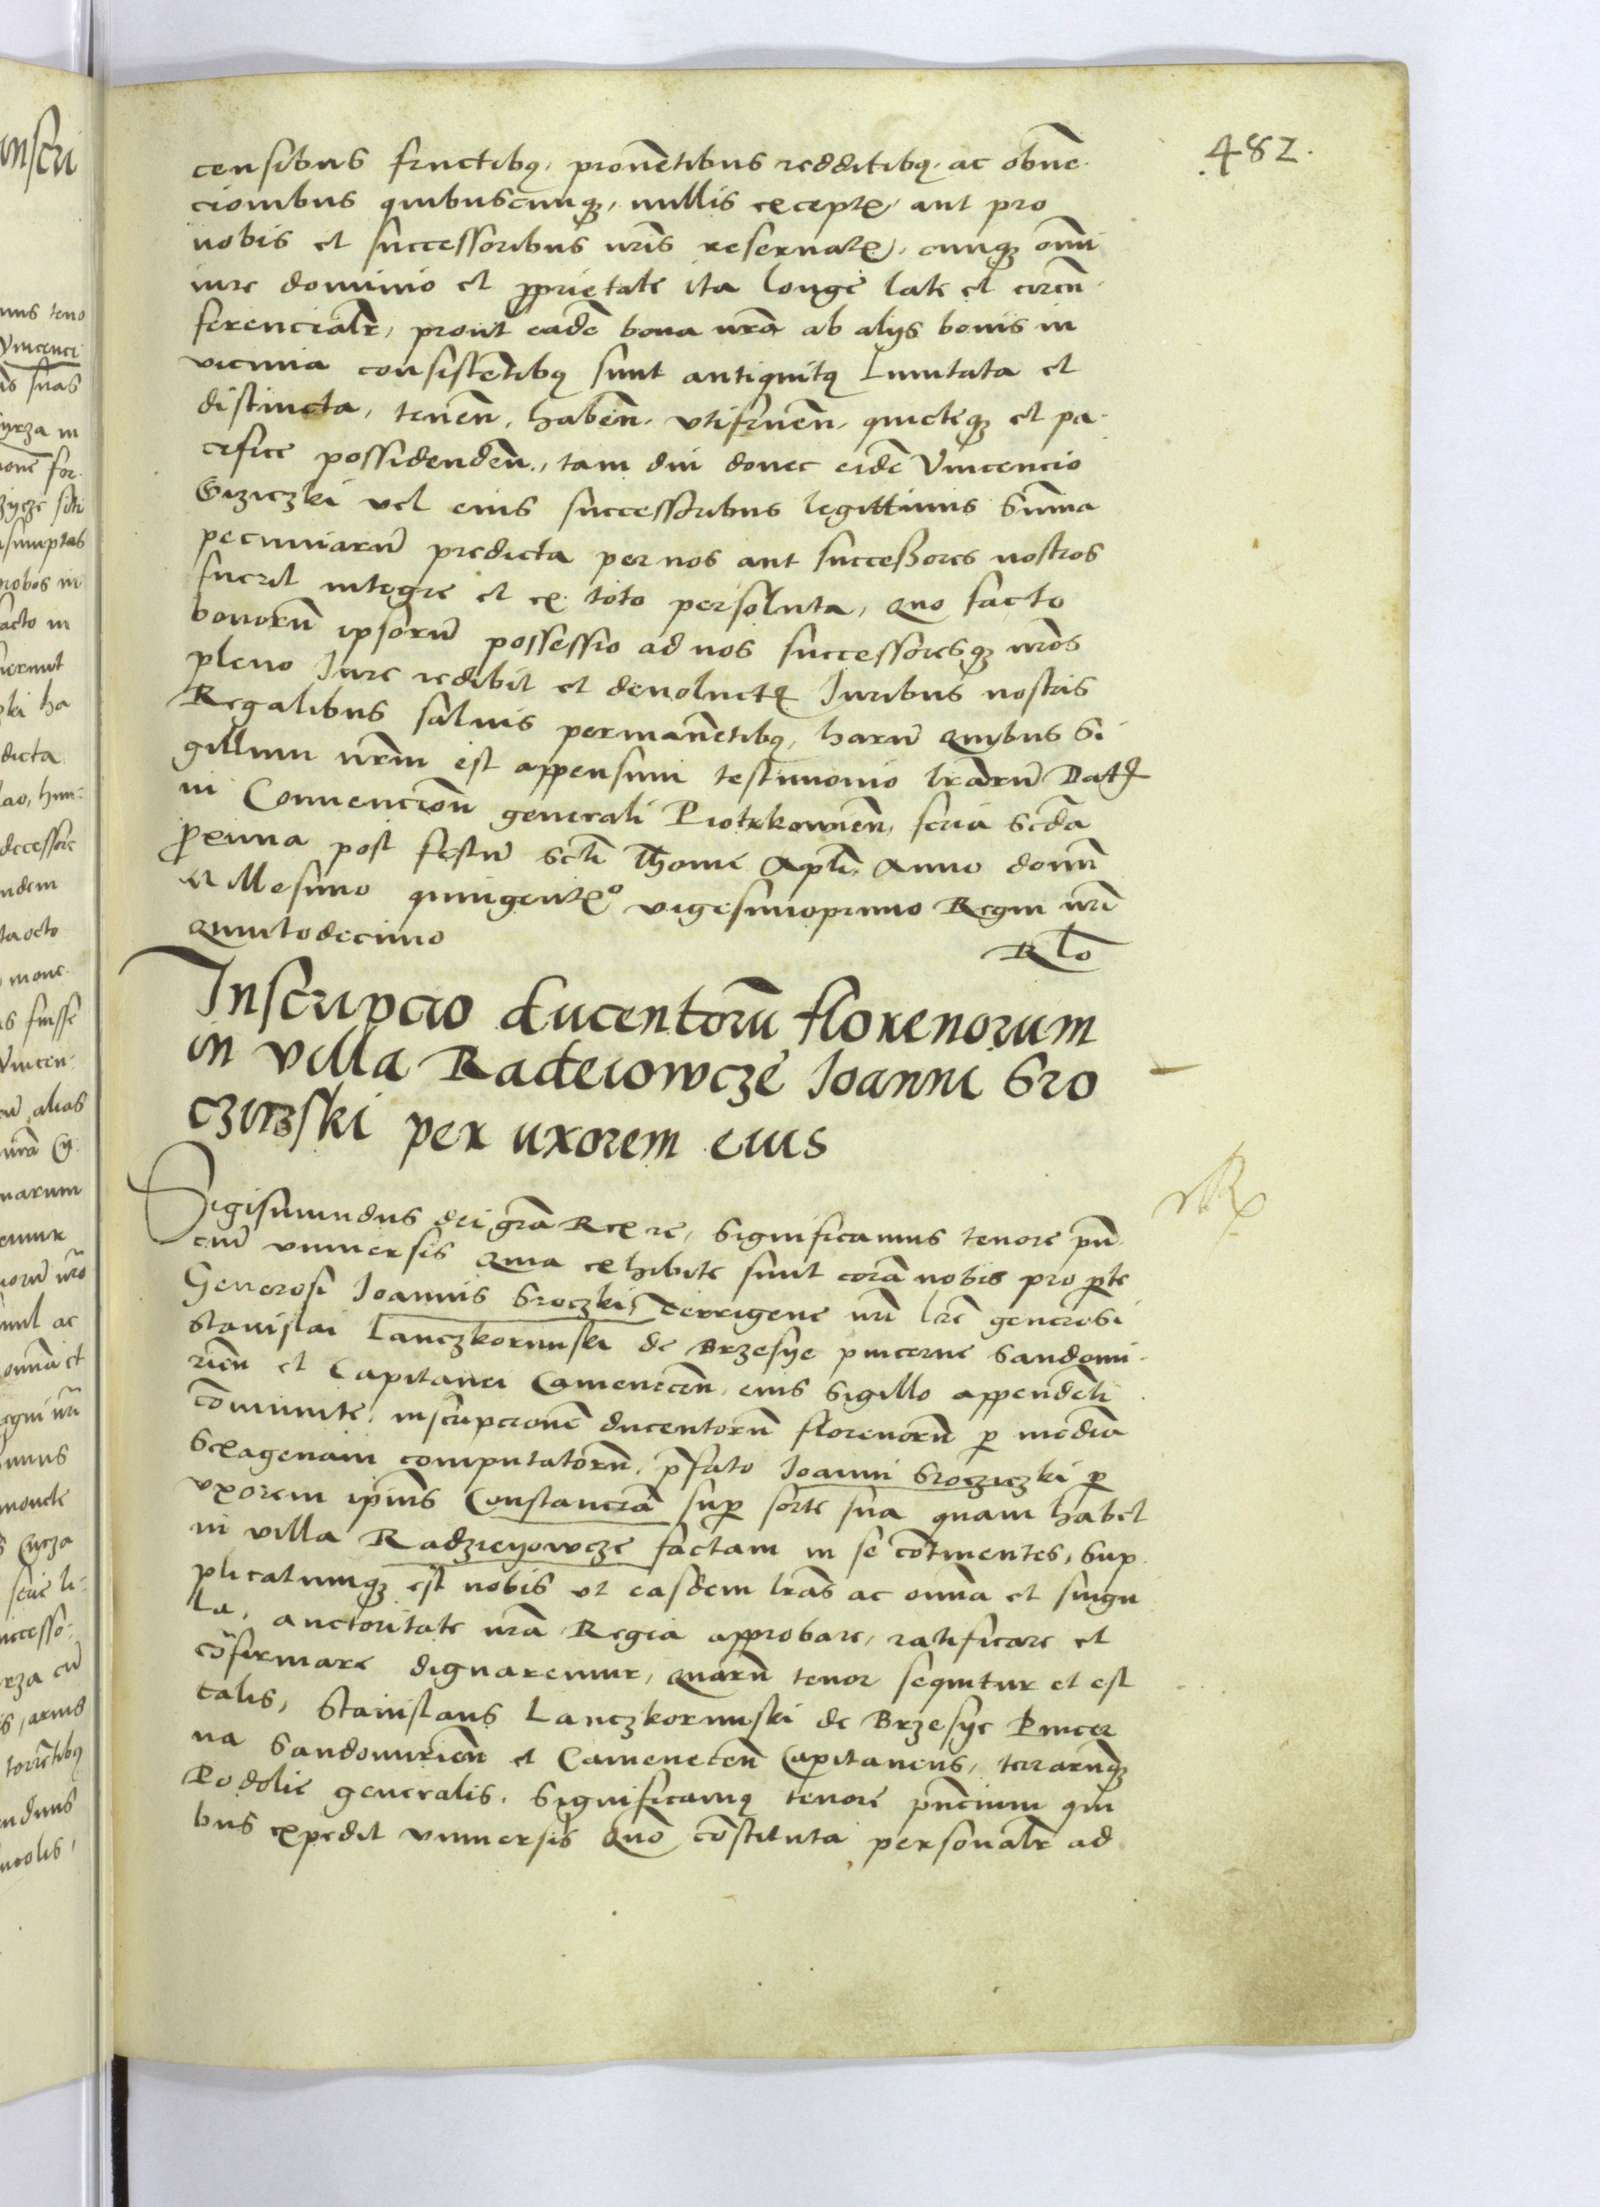 482.
censibus fructibq, prouētibus redditibq. ac obuē-
cionibus quibuscunqz, nullis exceptis, aut pro
nobis et successoribus nris reseruatis, cunqz omni
iure dominio et ꝓprietate ita longe late et circū-
ferencialr, prout eadē bona nrā ab alijs bonis in
vicinia consistētibq sunt antiquitq Limitata et
distincta, tenen̄, haben̄, vtifruen̄, quieteqz et pa-
cifice possidenden̄, tam diu donec eidē Vincencio
Giziczki vel eius successoribus legittimis Sūma
pecuniarū predicta per nos aut successores nostros
fuerit integre et ex toto persoluta, Quo facto
bonorū ipsorū possessio ad nos successoresqz nrōs
pleno Iure redibit et deuoluetur Iuribus nostris
Regalibus saluis permanētibq, harū Quibus Si
gillum nrm est appensum testimonio lrārū Datum
in Conuencion̄ generali Piotrkowien̄, feria Scdā
ꝓxima post festū Scti Thome Apli, Anno domī
Millesimo quingentesimo vigesimoprimo Regni nrī
Quintodecimo
Rlo
Inscripcio ducentorū florenorum
in villa Radeiowcze Ioanni Sro
czirzski per uxorem eius
Sigismundus dei grā Rex re, Significamus tenore pn̄-
ciū vniuersis Quia exhibite sunt corā nobis pro pte
Generosi Ioannis Sroczkis terrigene nrī lrē generosi
Stanislai Lanczkorunski de Brzesye pincerne Sandomi-
rien̄ et Capitanei Camenecen̄, eius Sigillo appendēti
cōmunite, inscripcionē ducentorū florenorū ꝑ mediā
Sexagenam computatorū, p̄fato Ioanni Sroczczki ꝑ
vxorem ipīus Constanciā sup sorte sua quam habet
in villa Radzieyowcze factam in se cōtinentes, Sup-
plicatumqz est nobis vt easdem lrās ac omīa et singu
la, auctoritate nrā Regia approbare, ratificare et
cōfirmare dignaremur, Quarū tenor sequitur et est
talis, Stanislaus Lanczkorunski de Brzesye Pincer
na Sandomirien̄ et Camenecen̄ Capitaneus, terrarūqz
Podolie generalis, Significamq tenore pn̄cium qui
bus expedit vniuersis Quō cōstituta personalr ad